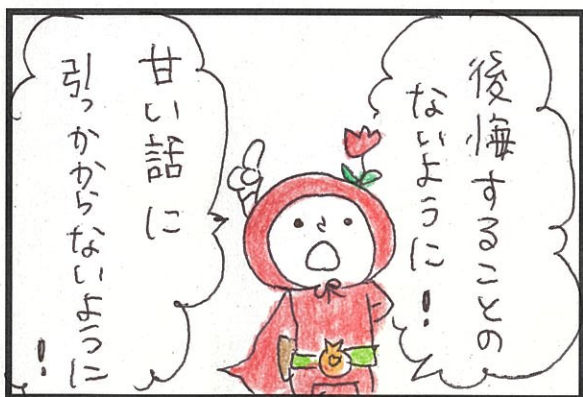 後悔することの
ないように！
甘い話に
引っかからないように！